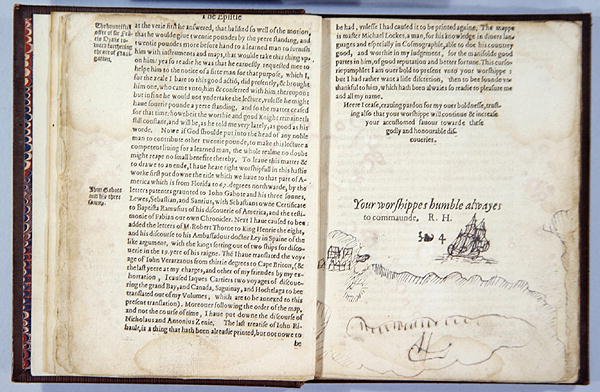 The Epistle
The bountifull
offer of Sir Fra-
cis Drake to-
wards furthering
the arte of Naui-
gation.
at the verie first he answered, that he liked so well of the motion,
that he would giue twentie poundes by the yeere standing, and
twentie poundes more before hand to a learned man to furnish
him with instruments and maps, that would take this thing vpon
on him: yea so readie he was that he earnestly requested mee to
helpe him to the notice of a fitte man for that purpose, which I,
for the zeale I bare to this good actiō, did presently, & brought
him one, who came vnto him & conferred with him therevpon:
but in fine he would not vndertake the lecture, vnlesse he might
haue fourtie pounde a yeere standing, and so the matter ceased
for that time: howbeit the worthie and good Knight remaineth
still constant, and will be, as he told me very lately, as good as his
worde. Nowe if God shoulde put into the head of any noble
man to contribute other twentie pounde, to make this lecture a
competent liuing for a learned man, the whole realme no doubt
might reape no small benefite thereby. To leaue this matter &
to drawe to an ende, I haue heere right worshipfull in this hastie
worke first put downe the title which we haue to that part of A-
merica which is from Florida to 67. degrees northwarde, by the
Iohn Gabote
and his three
sonnes.
letters patentes graunted to Iohn Gabote and his three sonnes,
Lewes, Sebastian, and Santius, with Sebastians owne Certificate
to Baptista Ramusius of his discouerie of America, and the testi-
monie of Fabian our own Chronicler. Next I haue caused to bee
added the letters of M. Robert Thorne to King Henrie the eight,
and his discourse to his Ambassadour doctor Ley in Spaine of the
like argument, with the kings setting out of two ships for discou-
uerie in the 19. yere of his raigne. Thē I haue translated the voy-
age of Iohn Verarzanus from thirtie degrees to Cape Briton, (&
the last yeere at my charges, and other of my friendes by my ex-
hortation, I caused Iaques Cartiers two voyages of discoue-
ring the grand Bay, and Canada, Saguinay, and Hochelaga to bee
translated out of my Volumes, which are to be annexed to this
present translation). Moreouer following the order of the map,
and not the course of time, I haue put downe the discourse of
Nicholaus and Antonius Zenie. The last treatise of Iohn Ri-
bault, is a thing that hath been alreadie printed, but not nowe to
be
be had, vnlesse I had caused it to be printed againe. The mappe
is master Michael Lockes, a man, for his knowledge in diuers lan-
guages and especially in Cosmographie, able to doe his country
good, and worthie in my iudgement, for the manifolde good
partes in him, of good reputation and better fortune. This cur-
sorie pamphlet I am ouer bold to present vnto your worshippes:
but I had rather want a litle discretion, then to bee founde vn-
thankful to him, which hath been alwaies so readie to pleasure me
and all my name.
Heere I cease, crauing pardon for my ouer boldnesse, trust-
ing also that your worshippe will continue & increase
your accustomed fauour towarde these
godly and honourable dis-
coueries.
Your worshippes humble alwayes
to commaunde, R. H.
4